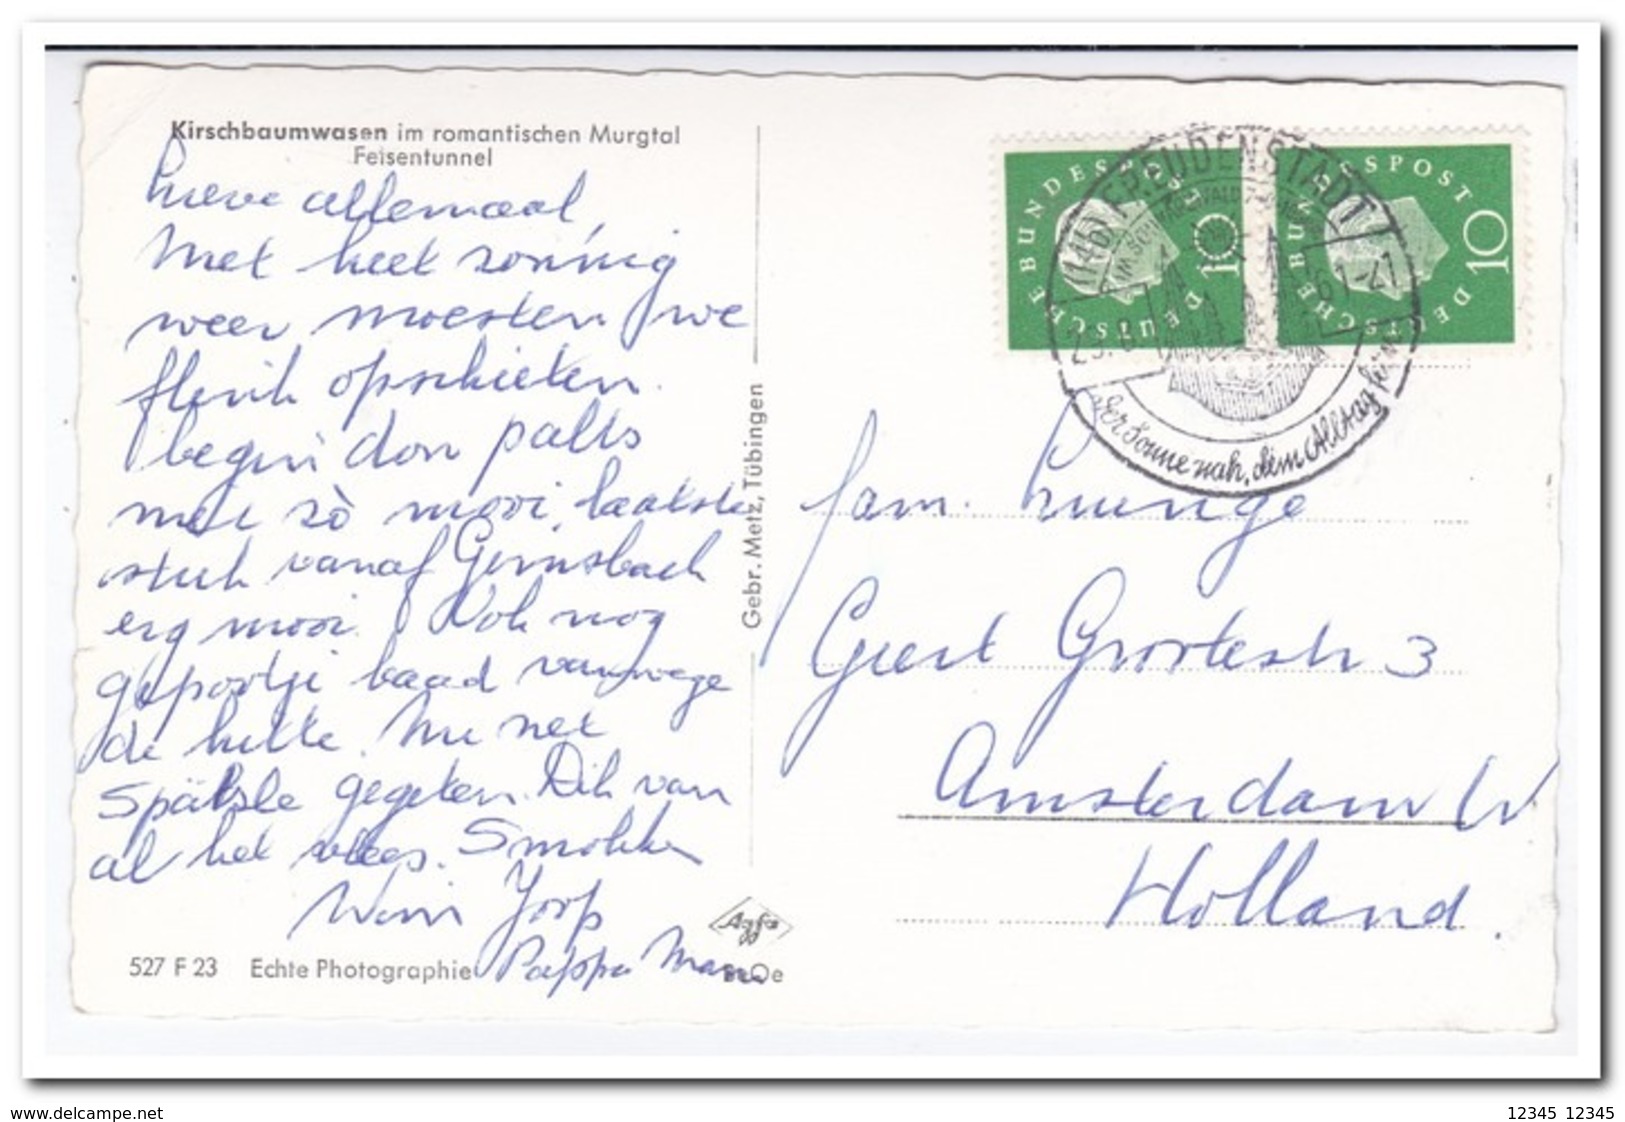 Kirschbaumwasen im romantischen Murgtal
Felsentunnel
Lieve allemaal,
Met heet zonnig
weer moesten we
flink opschieten.
begin don palts
niet zò mooi, laatste
stuk vanaf Gernsbach
erg mooi. Ook nog
gepootje baad vanwege
de hitte. Nu net
Spätsle gegeten. Dik van
al het vlees. Smakken
Wim Joop
Pappa Mam
527 F 23 Echte Photographie
Agfa
Gebr. Metz, Tübingen
DEUTSCHE BUNDESPOST 10
DEUTSCHE BUNDESPOST 10
(14b) FREUDENSTADT
61-21
der Sonne nah, dem Alltag fern
fam. Runge
Geert Grootestr 3
Amsterdam W
Holland.
www.delcampe.net
12345 12345